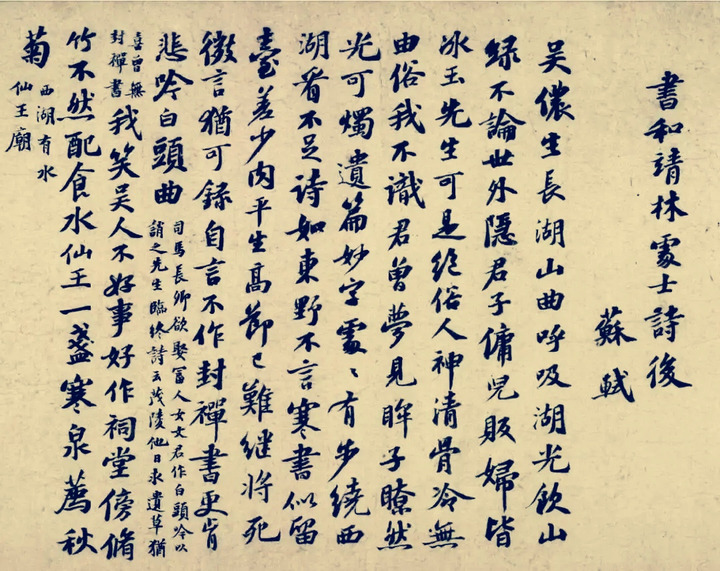 書和靖林處士詩後
蘇軾
吴儂生長湖山曲呼吸湖光飲山
緑不論世外隱君子傭兒販婦皆
冰玉先生可是絶俗人神清骨冷無
由俗我不識君曾夢見眸子瞭然
光可燭遺篇妙字處〻有步繞西
湖看不足詩如東野不言寒書似留
臺差少肉平生高節已難繼將死
微言猶可録自言不作封禪書更肯
悲吟白頭曲
司馬長卿欲娶富人女文君作白頭吟以
誚之先生臨終詩云茂陵他日求遺草猶
喜曾無
封禪書
我笑吴人不好事好作祠堂傍脩
竹不然配食水仙王一盞寒泉薦秋
菊
西湖有水
仙王廟